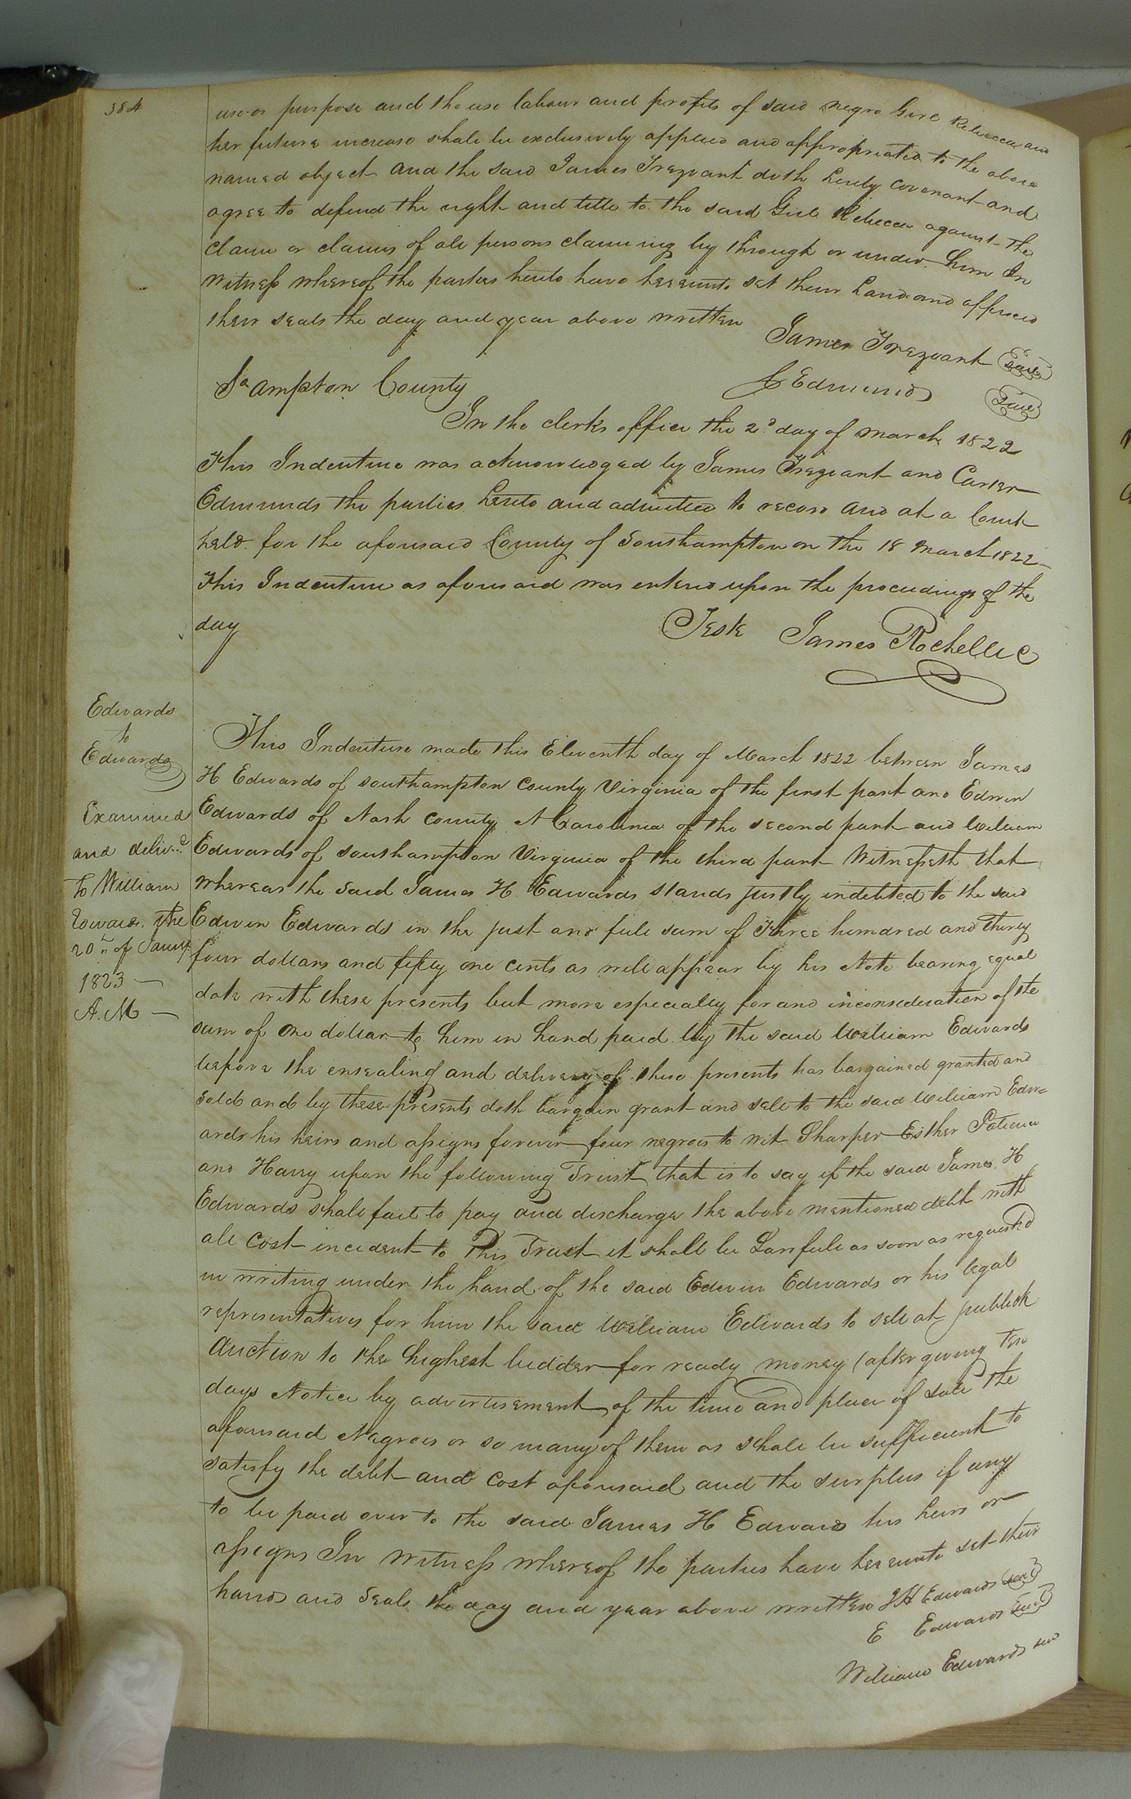 384
use or purpose and the use labour and profits of said negro Girl Rebecca and
her future increase shall be exclusively applied and appropriated to the above
named object and the said James Trezvant doth hereby covenant and
agree to defend the right and title to the said Girl Rebecca against the
claim or claims of all persons claiming by through or under him In
Witness whereof the parties hereto have hereunto set their hands and affixed
their seals the day and year above written
James Trezvant Seal
Edmunds Seal
So ampton County
In the clerks office the 2d day of March 1822
This Indenture was acknowledged by James Trezvant and Carter
Edmunds the parties hereto and admitted to record and at a Court
held for the aforesaid County of Southampton on the 18 March 1822
This Indenture as aforesaid was entered upon the proceedings of the
day
Teste James Rochelle C
Edwards
to
Edwards
Examined
and delivd
to William
Edwards the
20th of Jany
1823
A. M
This Indenture made this Eleventh day of March 1822 between James
H Edwards of Southampton County Virginia of the first part and Edwin
Edwards of Nash County N Carolina of the second part and William
Edwards of Southampton Virginia of the third part Witnesseth that
whereas the said James H Edwards stands justly indebted to the said
Edwin Edwards in the just and full sum of three hundred and thirty
four dollars and fifty one cents as will appear by his Note bearing equal
date with these presents but more especially for and in consideration of the
sum of one dollar to him in hand paid by the said William Edwards
before the ensealing and delivery of these presents has bargained granted and
sold and by these presents doth bargain grant and sell to the said William Edw=
ards his heirs and assigns forever four negroes to wit Sharper Esther Patience
and Harry upon the following Trust that is to say if the said James H
Edwards shall fail to pay and discharge the above mentioned debt with
all cost incident to this Trust it shall be Lawfull as soon as requested
in writing under the hand of the said Edwin Edwards or his legal
representatives for him the said William Edwards to sell at publick
Auction to the highest bidder for ready money (after giving ten
days Notice by advertisement of the time and place of sale the
aforesaid Negroes or so many of them as shall be sufficient to
satisfy the debt and cost aforesaid and the surplus if any
to be paid over to the said James H Edwards his heirs or
assigns In Witness whereof the parties have hereunto set their
hands and seals the day and year above written J H Edwards seal
E Edwards seal
William Edwards seal